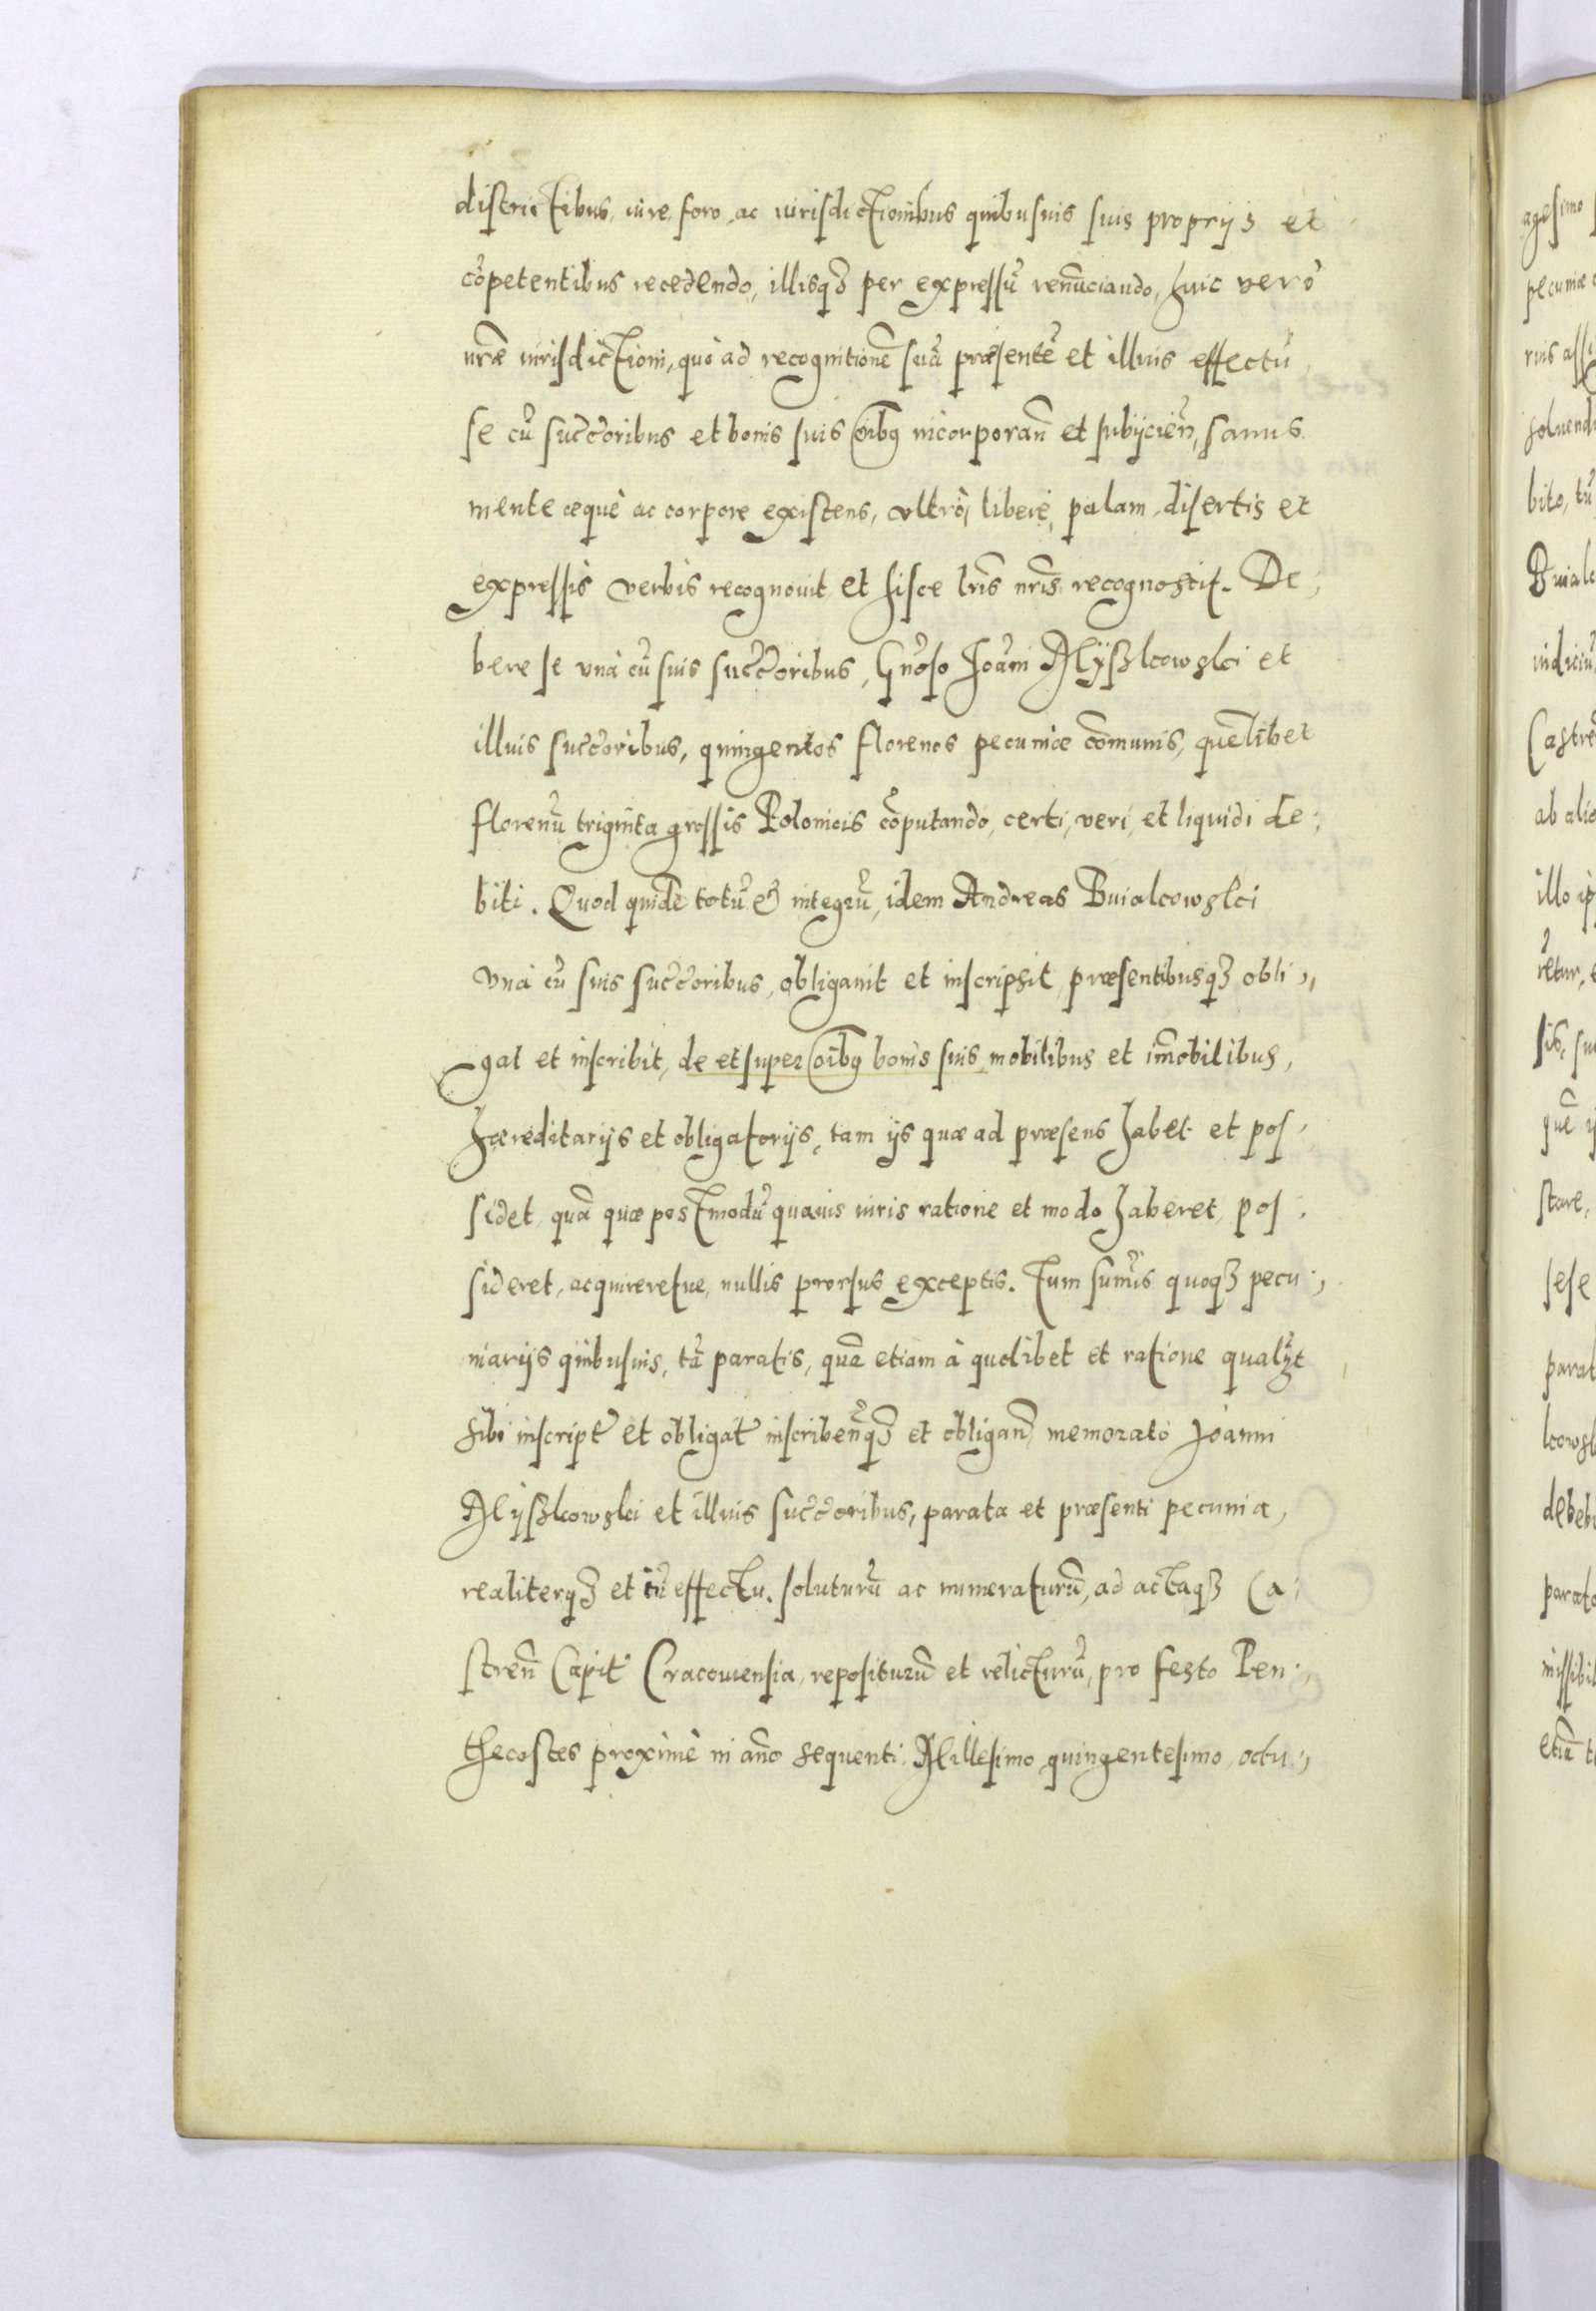 districtibus, iure, foro, ac iurisdictionibus quibusuis suis proprijs et
cōpetentibus recedendo, illisqȝ per expressū renūciando, huic verò
nr̄æ iurisdictioni, quò ad recognitionē suā præsentē et illius effectū
se cū succ̄oribus et bonis suis oībꝰ incorporan̄ et subijcien̄, sanus
mente æquè ac corpore existens, vltrò, liberè, palam, disertis et
expressis verbis recognouit et hisce lr̄is nr̄is recognoscit. De:
bere se vnà cū suis succ̄oribus, Gn̄oso Joāni Myszkowski et
illius succ̄oribus, quingentos florenos pecuniæ cōmunis, quēlibet
florenū triginta grossis Polonicis cōputando, certi, veri, et liquidi de:
biti. Quod quidē totū & integrū, idem Andreas Buiakowski
vnà cū suis succ̄oribus, obligauit et inscripsit, præsentibusqȝ obli:,
gat et inscribit, de et super oībꝰ bonis suis, mobilibus et im̄obilibus,
hæreditarijs et obligatorijs, tam ijs quæ ad præsens habet et pos:
sidet, quā quæ postmodū quauis iuris ratione et modo haberet, pos:
sideret, acquireretue, nullis prorsus exceptis. Tum sum̄is quoqȝ pecu:,
niarijs quibusuis, tā paratis, quā etiam à quolibet et ratione qualȝt
sibi inscript̄ et obligat̄ inscriben̄qȝ et obligan̄, memorato Joanni
Myszkowski et illius succ̄oribus, parata et præsenti pecunia,
realiterqȝ et cū effectu. soluturū ac numeraturū, ad actaqȝ Ca:
stren̄ Capit̄ Cracouiensia, repositurū et relicturū, pro festo Pen:,
thecostes proximè in an̄o sequenti Millesimo quingentesimo, octu:,
agesimo
pecuniæ
soluend
bito, tū
Buiak
Castrē
ab alio
illo ip
retur,
sis, su
quē
stare,
sese
parat
kowsk
debeb
parato